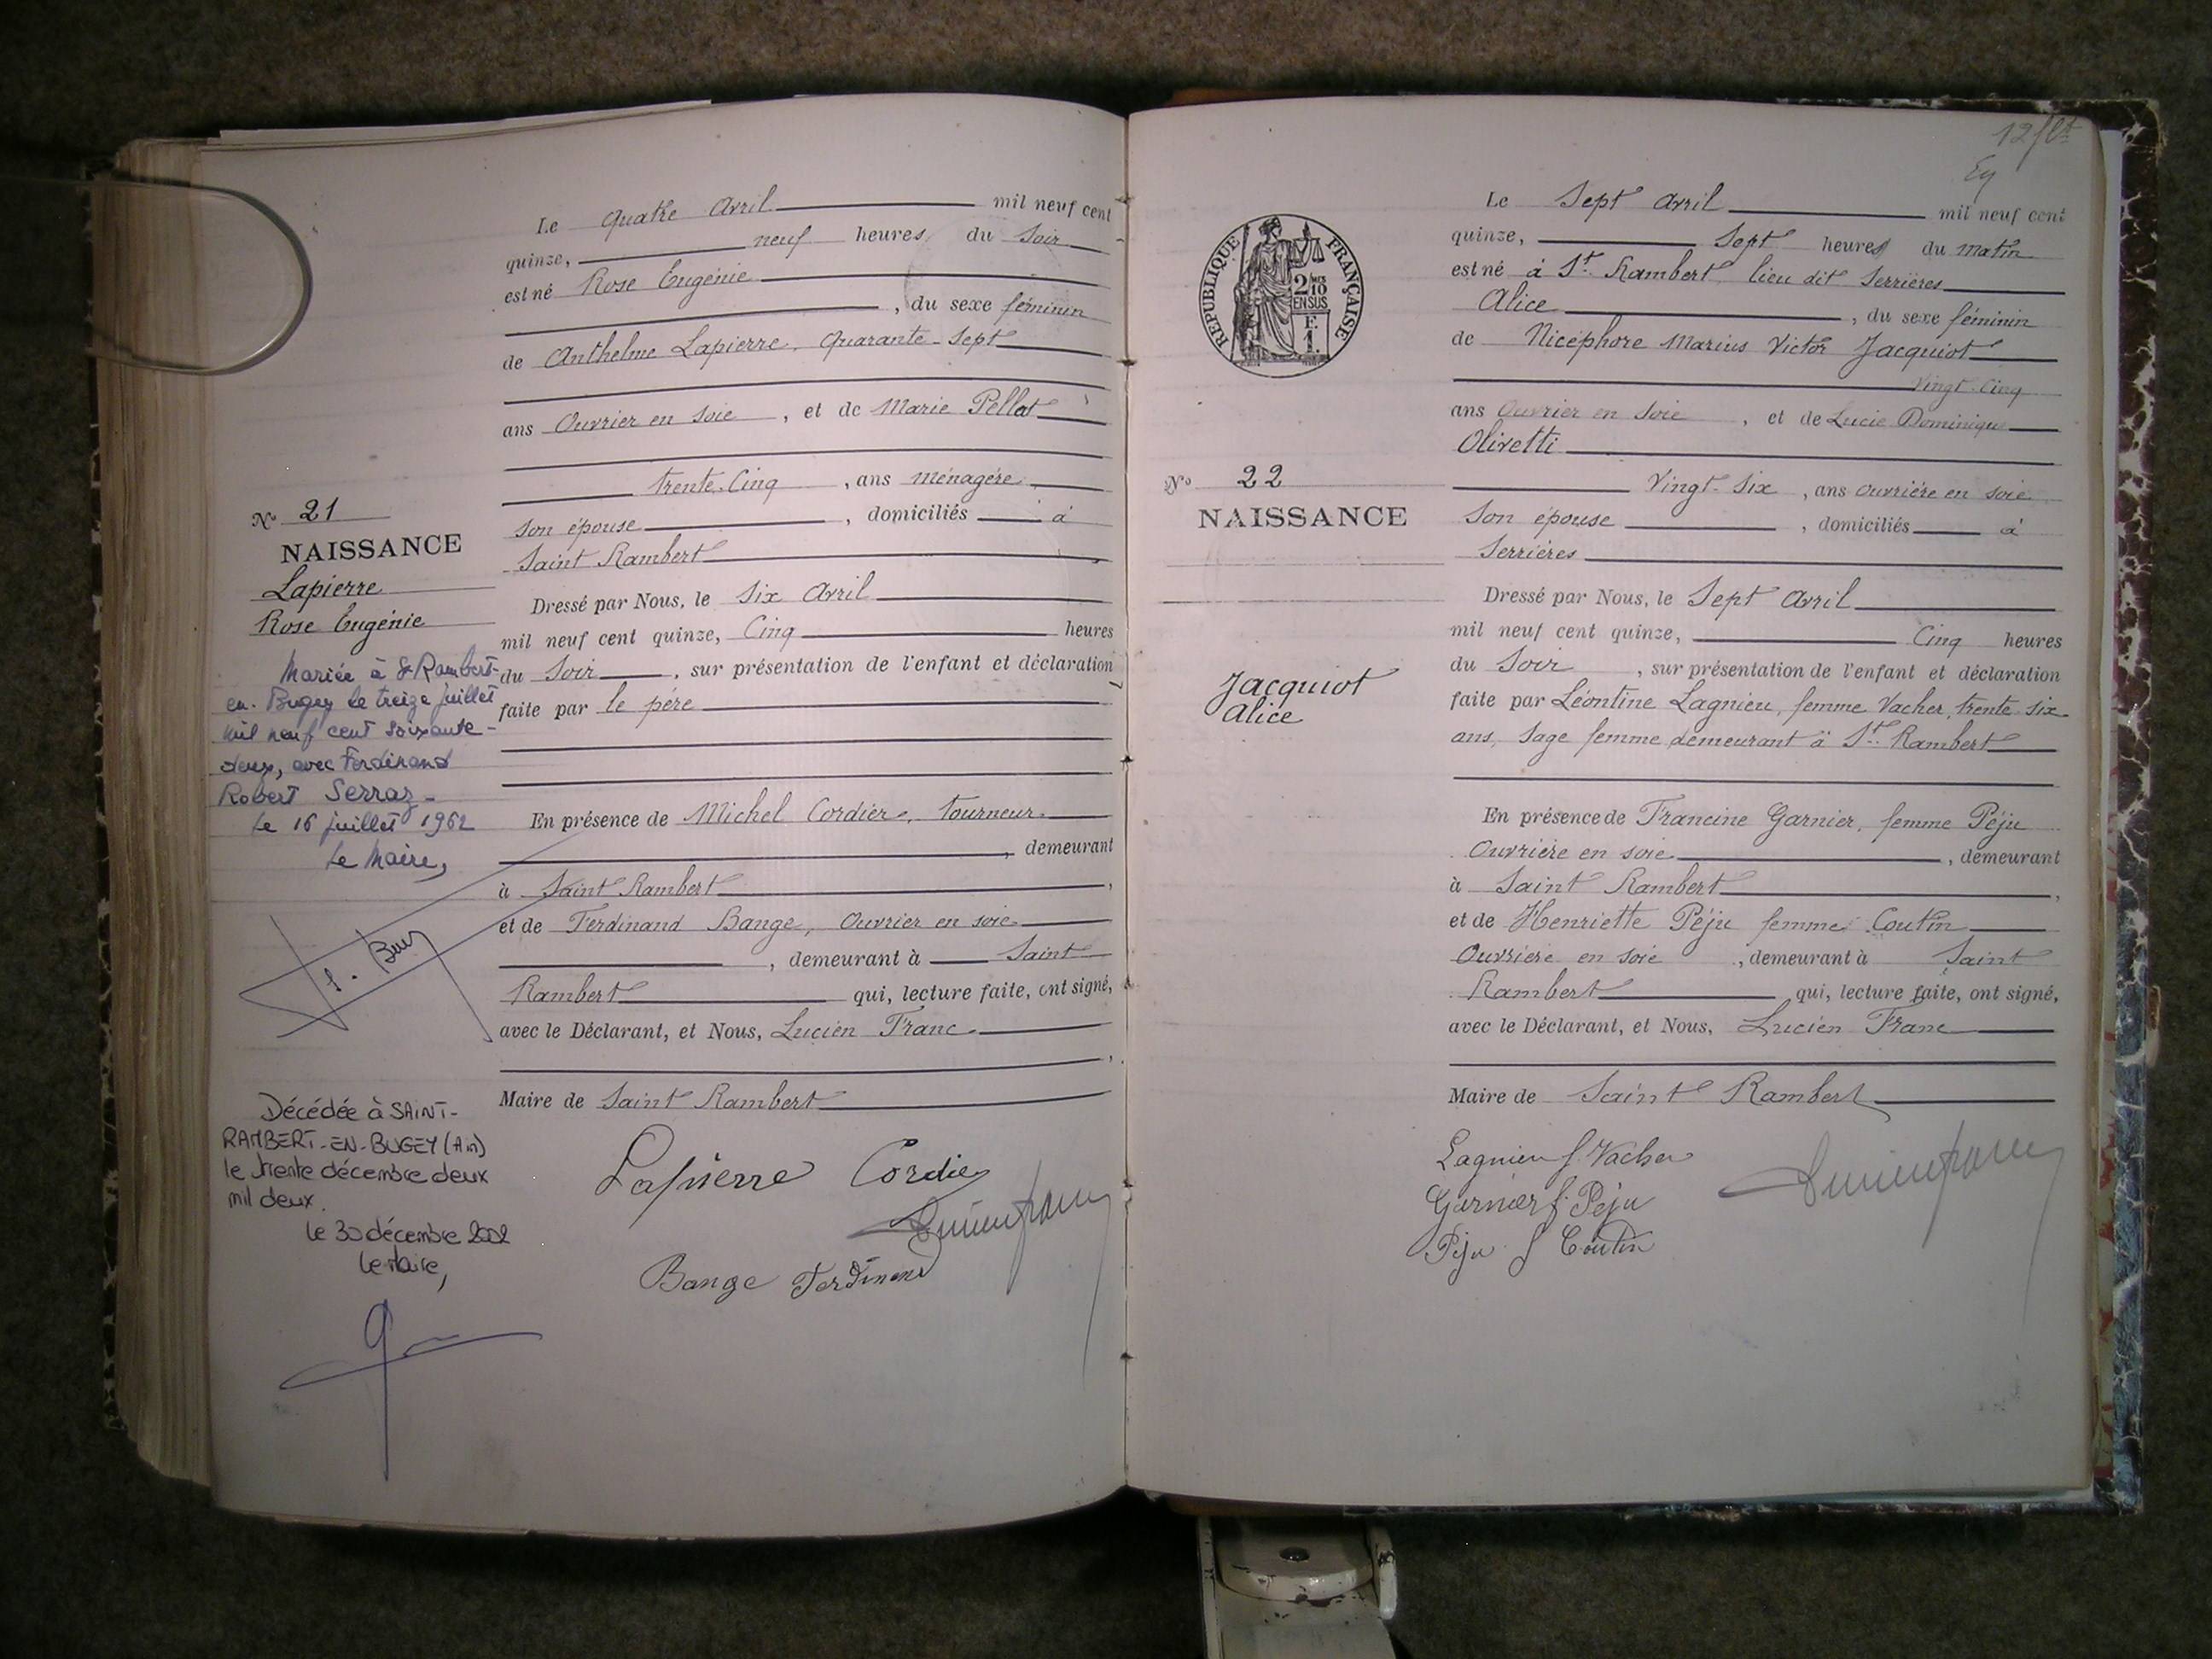 Le quatre Avril mil neuf cent
quinze, neuf heures du Soir
est né Rose Eugénie
, du sexe féminin
de Anthelme Lapierre, Quarante-Sept
ans Ouvrier en soie, et de Marie Pellat
trente-Cinq, ans ménagère
son épouse, domiciliés à
Saint Rambert
Dressé par Nous, le Six Avril
mil neuf cent quinze, Cinq heures
du Soir, sur présentation de l'enfant et déclaration
faite par le père
En présence de Michel Cordier, tourneur
, demeurant
à Saint Rambert,
et de Ferdinand Bange, Ouvrier en soie
, demeurant à Saint
Rambert qui, lecture faite, ont signé,
avec le Déclarant, et Nous, Lucien Franc
,
Maire de Saint Rambert
Lapierre Cordier
Bange Ferdinand
No 21
NAISSANCE
Lapierre
Rose Eugénie
Mariée à St Rambert-
en-Bugey le treize juillet
mil neuf cent soixante-
deux, avec Ferdinand
Robert Serraz-
Le 16 juillet 1962
Le Maire,
Décédée à SAINT-
RAMBERT-EN-BUGEY (Ain)
le trente décembre deux
mil deux.
Le 30 décembre 2002
Le Maire,
12 flt
RÉPUBLIQUE FRANÇAISE
2/10 EN SUS
F.
1.
Le Sept avril mil neuf cent
quinze, Sept heures du matin
est né à St. Rambert lieu dit Serrières
Alice, du sexe féminin
de Nicéphore Marius Victor Jacquiot
Vingt-Cinq
ans Ouvrier en Soie, et de Lucie Dominique
Olivetti
Vingt-Six, ans ouvrière en soie
Son épouse, domiciliés à
Serrières
Dressé par Nous, le Sept Avril
mil neuf cent quinze, Cinq heures
du Soir, sur présentation de l'enfant et déclaration
faite par Léontine Lagnieu, femme Vacher, trente six
ans, Sage femme demeurant à St. Rambert
En présence de Francine Garnier, femme Péju
Ouvrière en soie, demeurant
à Saint Rambert,
et de Henriette Péju femme Coutin
Ouvrière en soie, demeurant à Saint
Rambert qui, lecture faite, ont signé,
avec le Déclarant, et Nous, Lucien Franc
Maire de Saint Rambert
Lagnieu f. Vacher
Garnier f. Péju
Péju f Coutin
No 22
NAISSANCE
Jacquiot
Alice